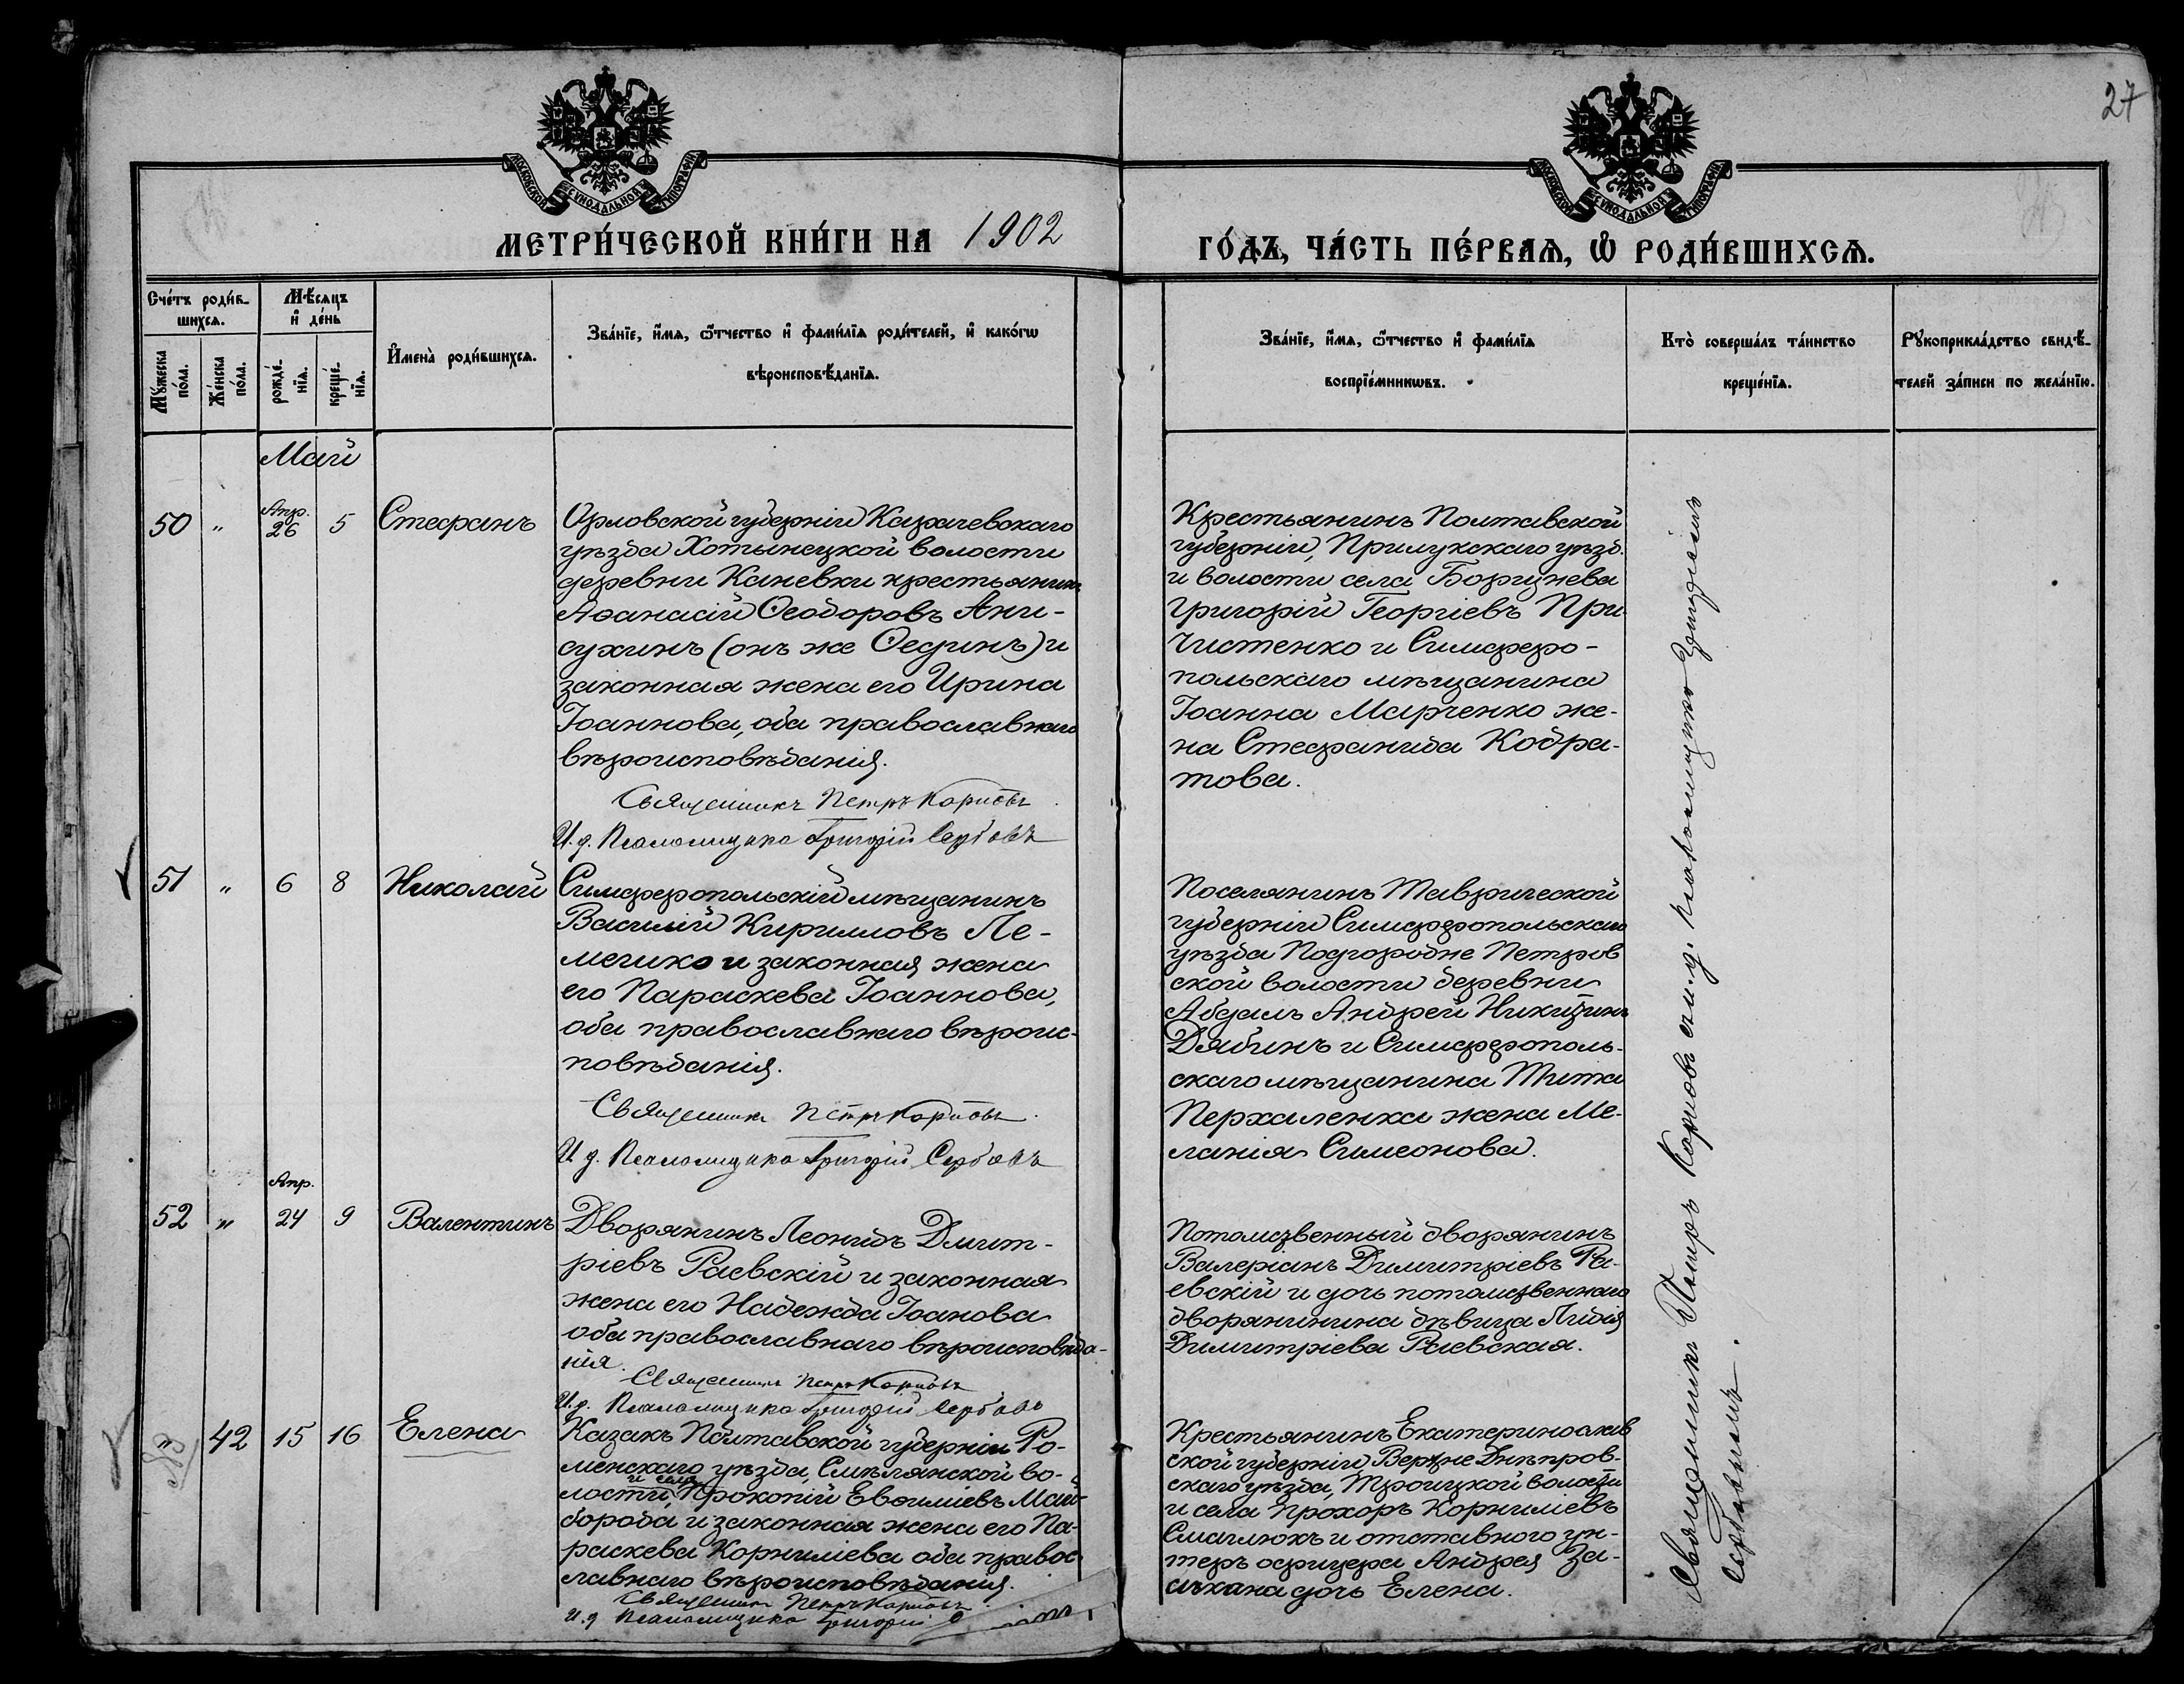 27
МОСКОВСКОЙ СУНОДАЛЬНОЙ ТИПОГРАФІИ
МОСКОВСКОЙ СУНОДАЛЬНОЙ ТИПОГРАФІИ
МЕТРИ́ЧЕСКОЙ КНИ́ГИ НА 1902
ГО́ДЪ, ЧА́СТЬ ПЕ́РВАѦ, Ѡ РОДИ́ВШИХСѦ.
Сче́тъ роди́в-
шихсѧ.
Мꙋ́жеска
по́ла.
Же́нска
по́ла.
Мѣ́сѧцъ
и҆ де́нь
рожде́-
нїѧ.
креще́-
нїѧ.
И҆мена̀ роди́вшихсѧ.
Зва́нїе, и҆́мѧ, ѻ҆́тчество и҆ фами́лїѧ роди́телей, и҆ како́гѡ
вѣроисповѣ́данїѧ.
Зва́нїе, и҆́мѧ, ѻ҆́тчество и҆ фами́лїѧ
воспрїе́мникѡвъ.
Кто̀ соверша́лъ та́инство
креще́нїѧ.
Рꙋкоприкла́дство свидѣ́-
телей за́писи по жела́нїю.
Май
50 " Апр. 26 5 Стефанъ
Орловской губерніи Карачевскаго
уѣзда Хотынецкой волости
деревни Каневки крестьянинъ
Аѳанасій Ѳеодоровъ Ани-
сухинъ (онъ же Ѳединъ) и
законная жена его Ирина
Іоаннова, оба православнаго
вѣроисповѣданія.
Священникъ Петръ Карповъ
И. д. Псаломщика Григорій Сербовъ
Крестьянинъ Полтавской
губерніи, Прилукскаго уѣзд.
и волости села
Григорій Георгіевъ При-
чистенко и Симферо-
польскаго мѣщанина
Іоанна Марченко же-
на Стефанида Кодра-
това.
51 " 6 8 Николай
Симферопольскій мѣщанинъ
Василій Кирилловъ Ле-
мешко и законная жена
его Параскева Іоаннова,
оба православнаго вѣроис-
повѣданія.
Священникъ Петръ Карповъ
И. д. Псаломщика Григорій Сербовъ
Поселянинъ Таврической
губерніи Симферопольскаго
уѣзда Подгородне Петров
ской волости деревни
Абдалъ Андрей Никитинъ
Дябинъ и Симферополь-
скаго мѣщанина Тита
Перхаленка жена Ме-
ланія Симеонова.
52 " Апр. 24 9 Валентинъ
Дворянинъ Леонидъ Дмит-
ріевъ Раевскій и законная
жена его Надежда Іоанова
оба православнаго вѣроисповѣда-
нія.
Священникъ Петръ Карповъ
И. д. Псаломщика Григорій Сербовъ
Потомственный дворянинъ
Валеріанъ Димитріевъ Ра-
евскій и дочь потомственнаго
дворянинина дѣвица Лидія
Димитріева Раевская.
" 42 15 16 Елена
Казакъ Полтавской губерніи Ро-
менскаго уѣзда, Смѣлянской во-
и села
лости, Прокопій Евѳиміевъ Май-
борода и законная жена его Па-
раскева Корниліева оба правос-
лавнаго вѣроисповѣданія.
Священникъ Петръ Карповъ
И. д Псаломщика Григорій
Крестьянинъ Екатеринослав
ской губерніи Верхне Днѣпров-
скаго уѣзда, Троицкой волости
и села Прохоръ Корнилiевъ
Смаглюкъ и отставного ун-
теръ офицера Андрея За-
дочь Елена.
Священникъ Петръ Карповъ съ и. д. псаломщика Григоріемъ
Сербовымъ.